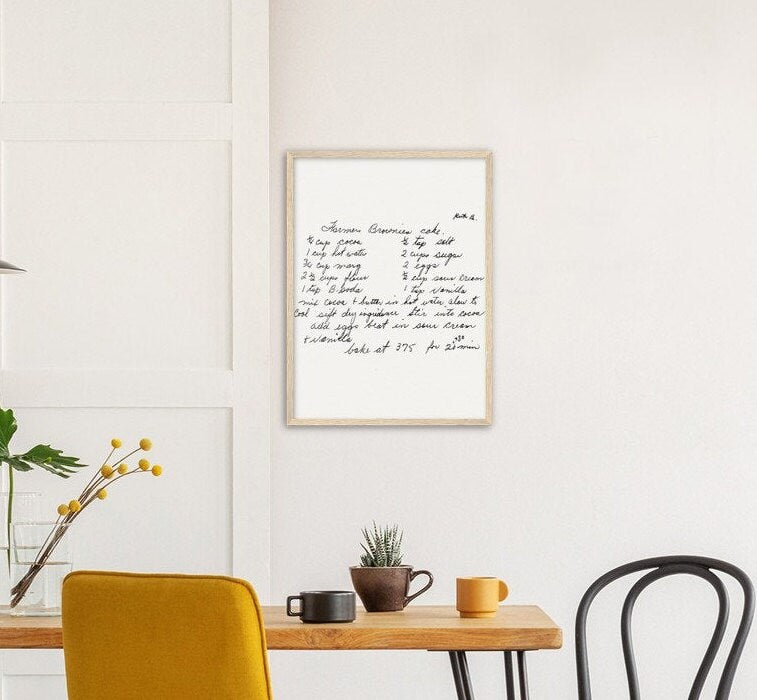 Farmers Brownies cake.
cup cocoa ½ tsp salt
1 cup hot water 2 cups sugar
¾ cup marg 2 eggs
2 ½ cups flour ½ cup sour cream
1 tsp B. Soda 1 tsp vanilla
mix cocoa + butter in hot water allow to
cool sift dry ingredients stir into cocoa
add eggs beat in sour cream
+ vanilla
bake at 375 for min